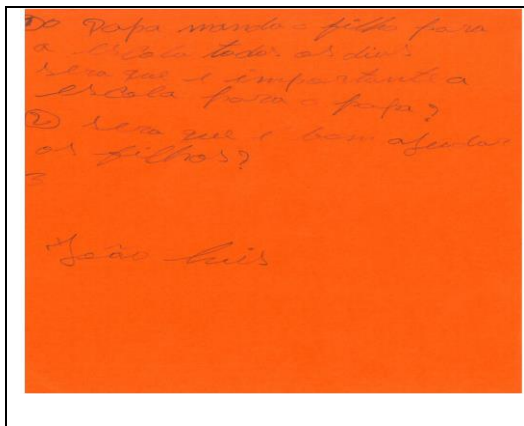 ① O Papa manda o filho para
a escola todos os dias
sera que é importante a
escola para o papa?
② sera que é bom ajudar
os filhos?
3
João Luis